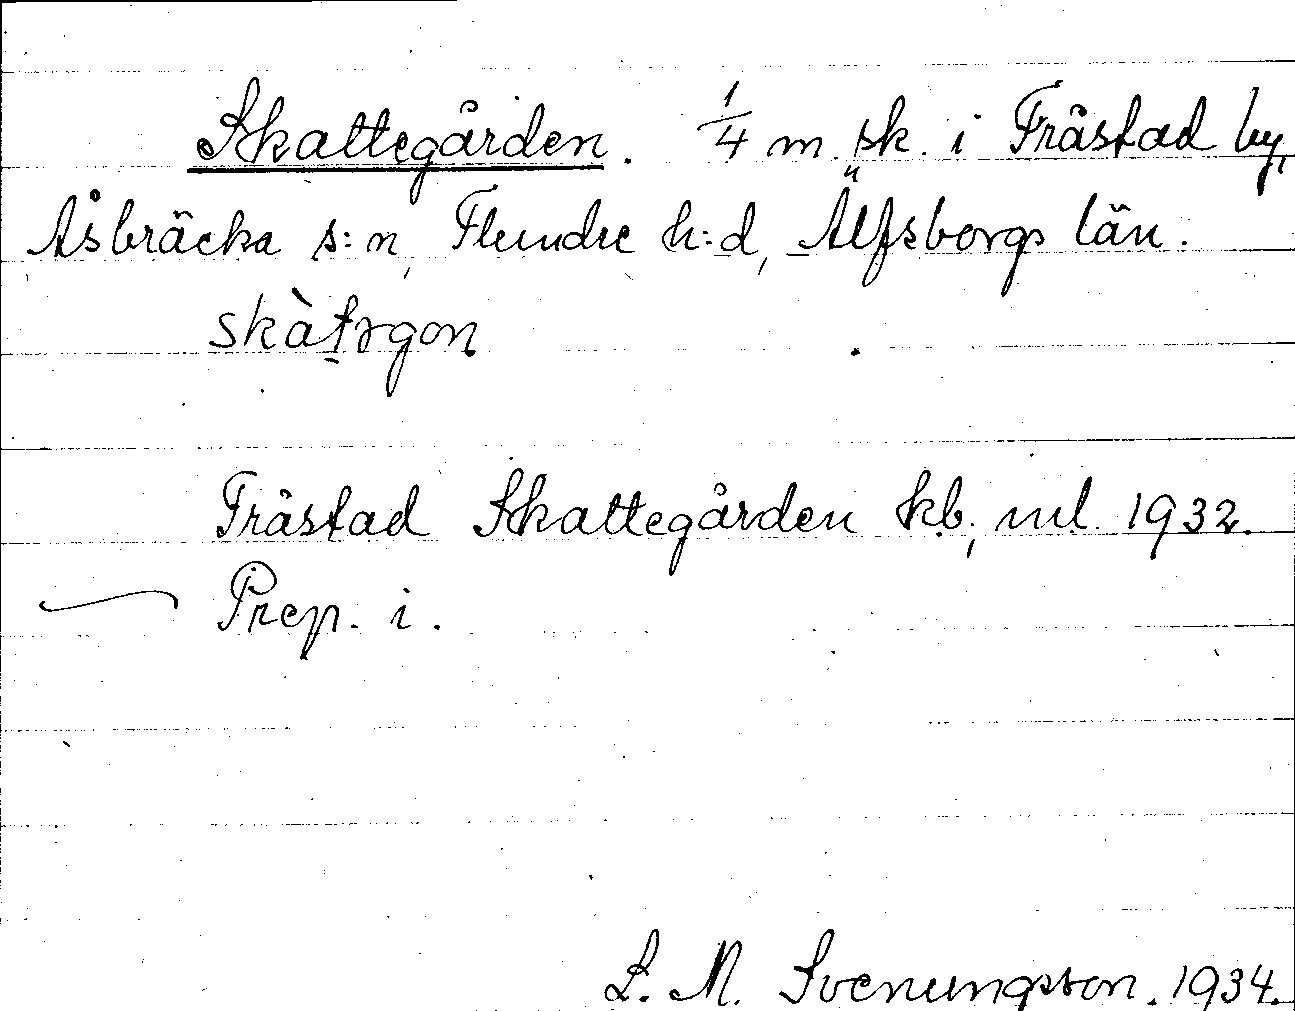 Skattegården. 1/4 m. sk. i Fråstad by,
Åsbräcka s:n, Flundre h:d, Älfsborgs län.
skàt̠rgon
Fråstad Skattegården kb., ml. 1932.
Prep. i.
S. M. Svenungsson. 1934.